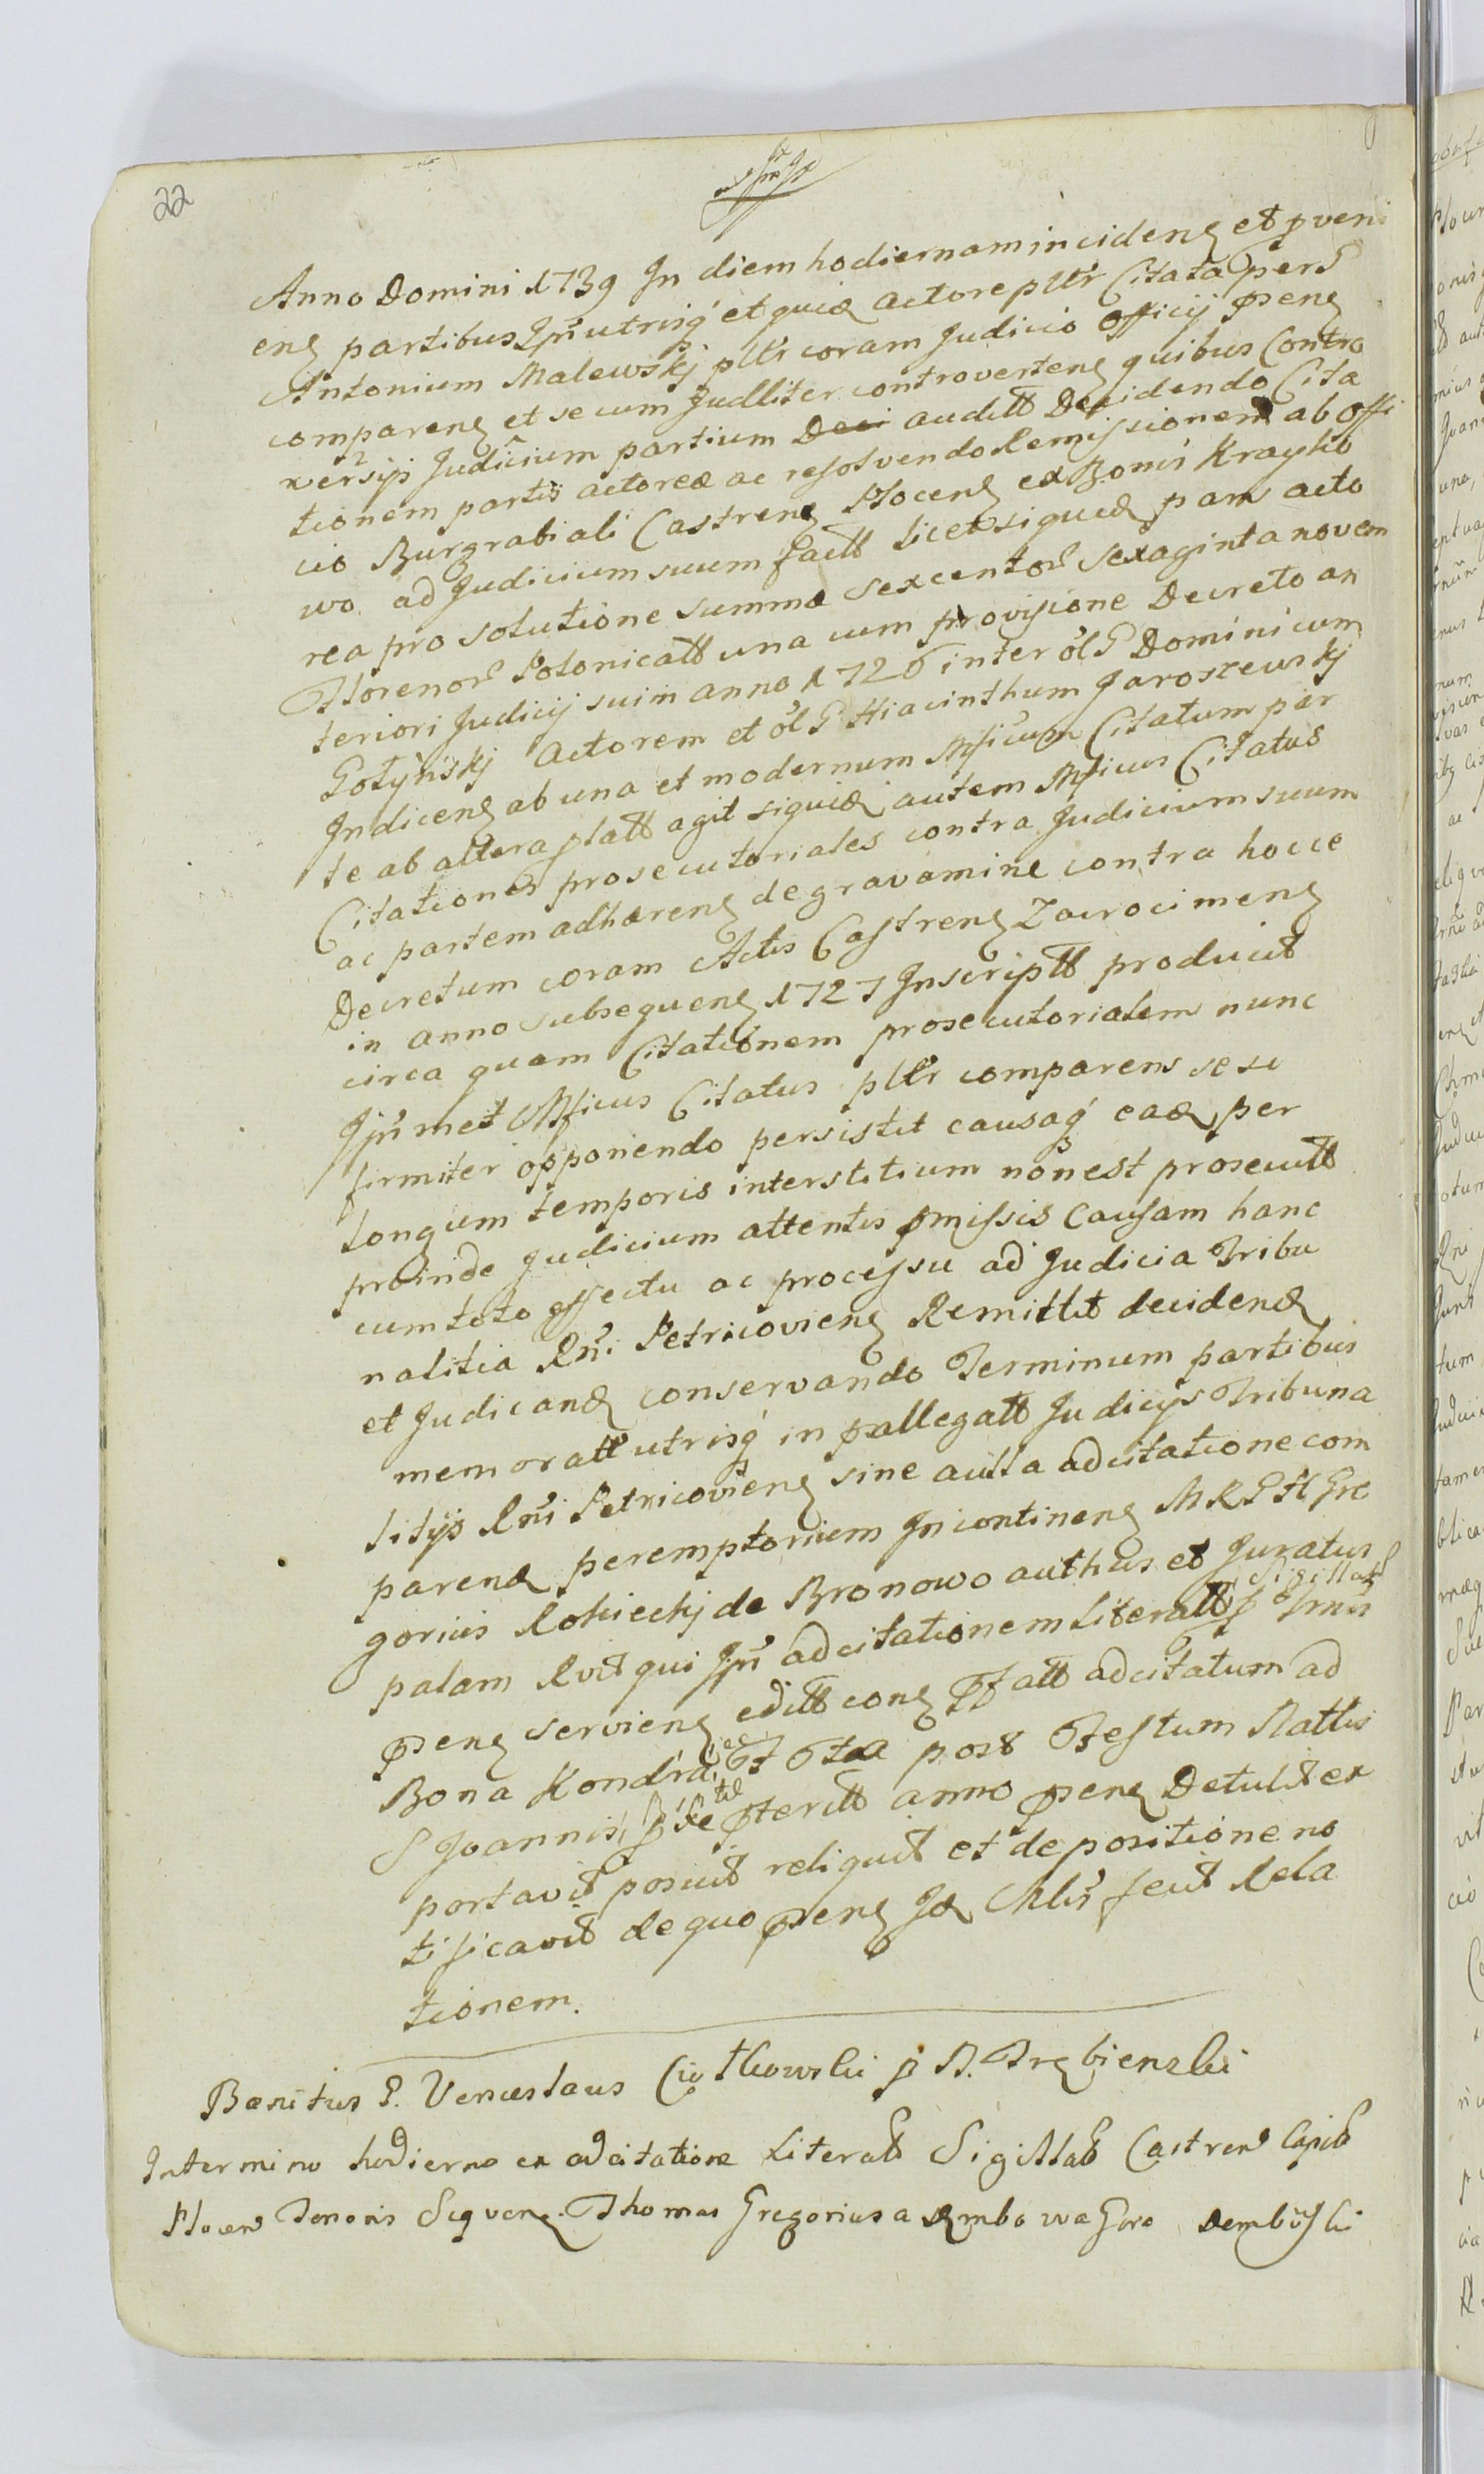 22
Anno Domini 1739 In diem hodiernam incidenę et pveni
enę partibus Ipn̄ utrisq́ et quidę actore pltr Citata per G
Antonium Malewskj pltr coram Judicio Officij p̄senę
comparenę et secum Judlliter controvertenę quibus Contro
versijs Judicium partium auditt Decidendo Cita
tionem partis actoreæ ac resolvendo Remissionem ab Offi
cio Burgrabiali Castrenę Plocenę ex Bonis Krayko
wo ad Judicium suum factt licet siquidę pars acto
rea pro solutione summæ sexcentor sexaginta novem
Florenor Polonicatt una cum provisione Decreto an
teriori Judicij sui in anno 1726 inter olG Dominicum
Gołynskj Actorem et ol G Hiacinthum Jaroszewskj
Judicenę ab una et modernum Mficum Citatum par
te ab altera platt agit siquidę autem Mficus Citatus
Citationes prosecutoriales contra Judicium suum
ac partem adhærenę de gravamine contra hocce
Decretum coram Actis Castrenę Zacrocimenę
in anno subsequenę 1727 Inscriptt producit
circa quam Citationem prosecutorialem nunc
Ipn̄met Mficus Citatus pltr comparens sese
firmiter opponendo persistit causaq́ eadę per
longum temporis interstitium non est prosecutt
proinde Judicium attentis p̄missis Causam hanc
cum toto effectu ac processu ad Judicia Tribu
nalitia Rn̄i Petricovienę Remittit decidendę
et Judicandę conservando Terminum partibus
memoratt utrisq́ in p̄allegatt Judicijs Tribuna
litijs Rn̄i Petricovienę sine aulla adcitatione com
parendę peremptorium Incontinenę M R G H Gre
gorius Rokickj de Bronowo authus et Juratus
palam Rvit qui Ipn̄ adcitationem literatt Sigillatt
p̄senę servienę editt conę p̄fatt adcitatum ad
Bona Kondra post Festum Nattis
S Joannis p̄teritt anno p̄senę Detulit ex
portavit posuit reliquit et de positione no
tificavit de quo p̄senę Idę Mltr fecit Rela
tionem.
Banitus G. Venceslaus Ciółkowski p N. Trębienski
In termino hodierno ex adcitatione Literatt Sigillatt Castren Capitt
Plocen Tenoris Sequenę. Thomas Gregorius a Dembowa Gora Dembiński